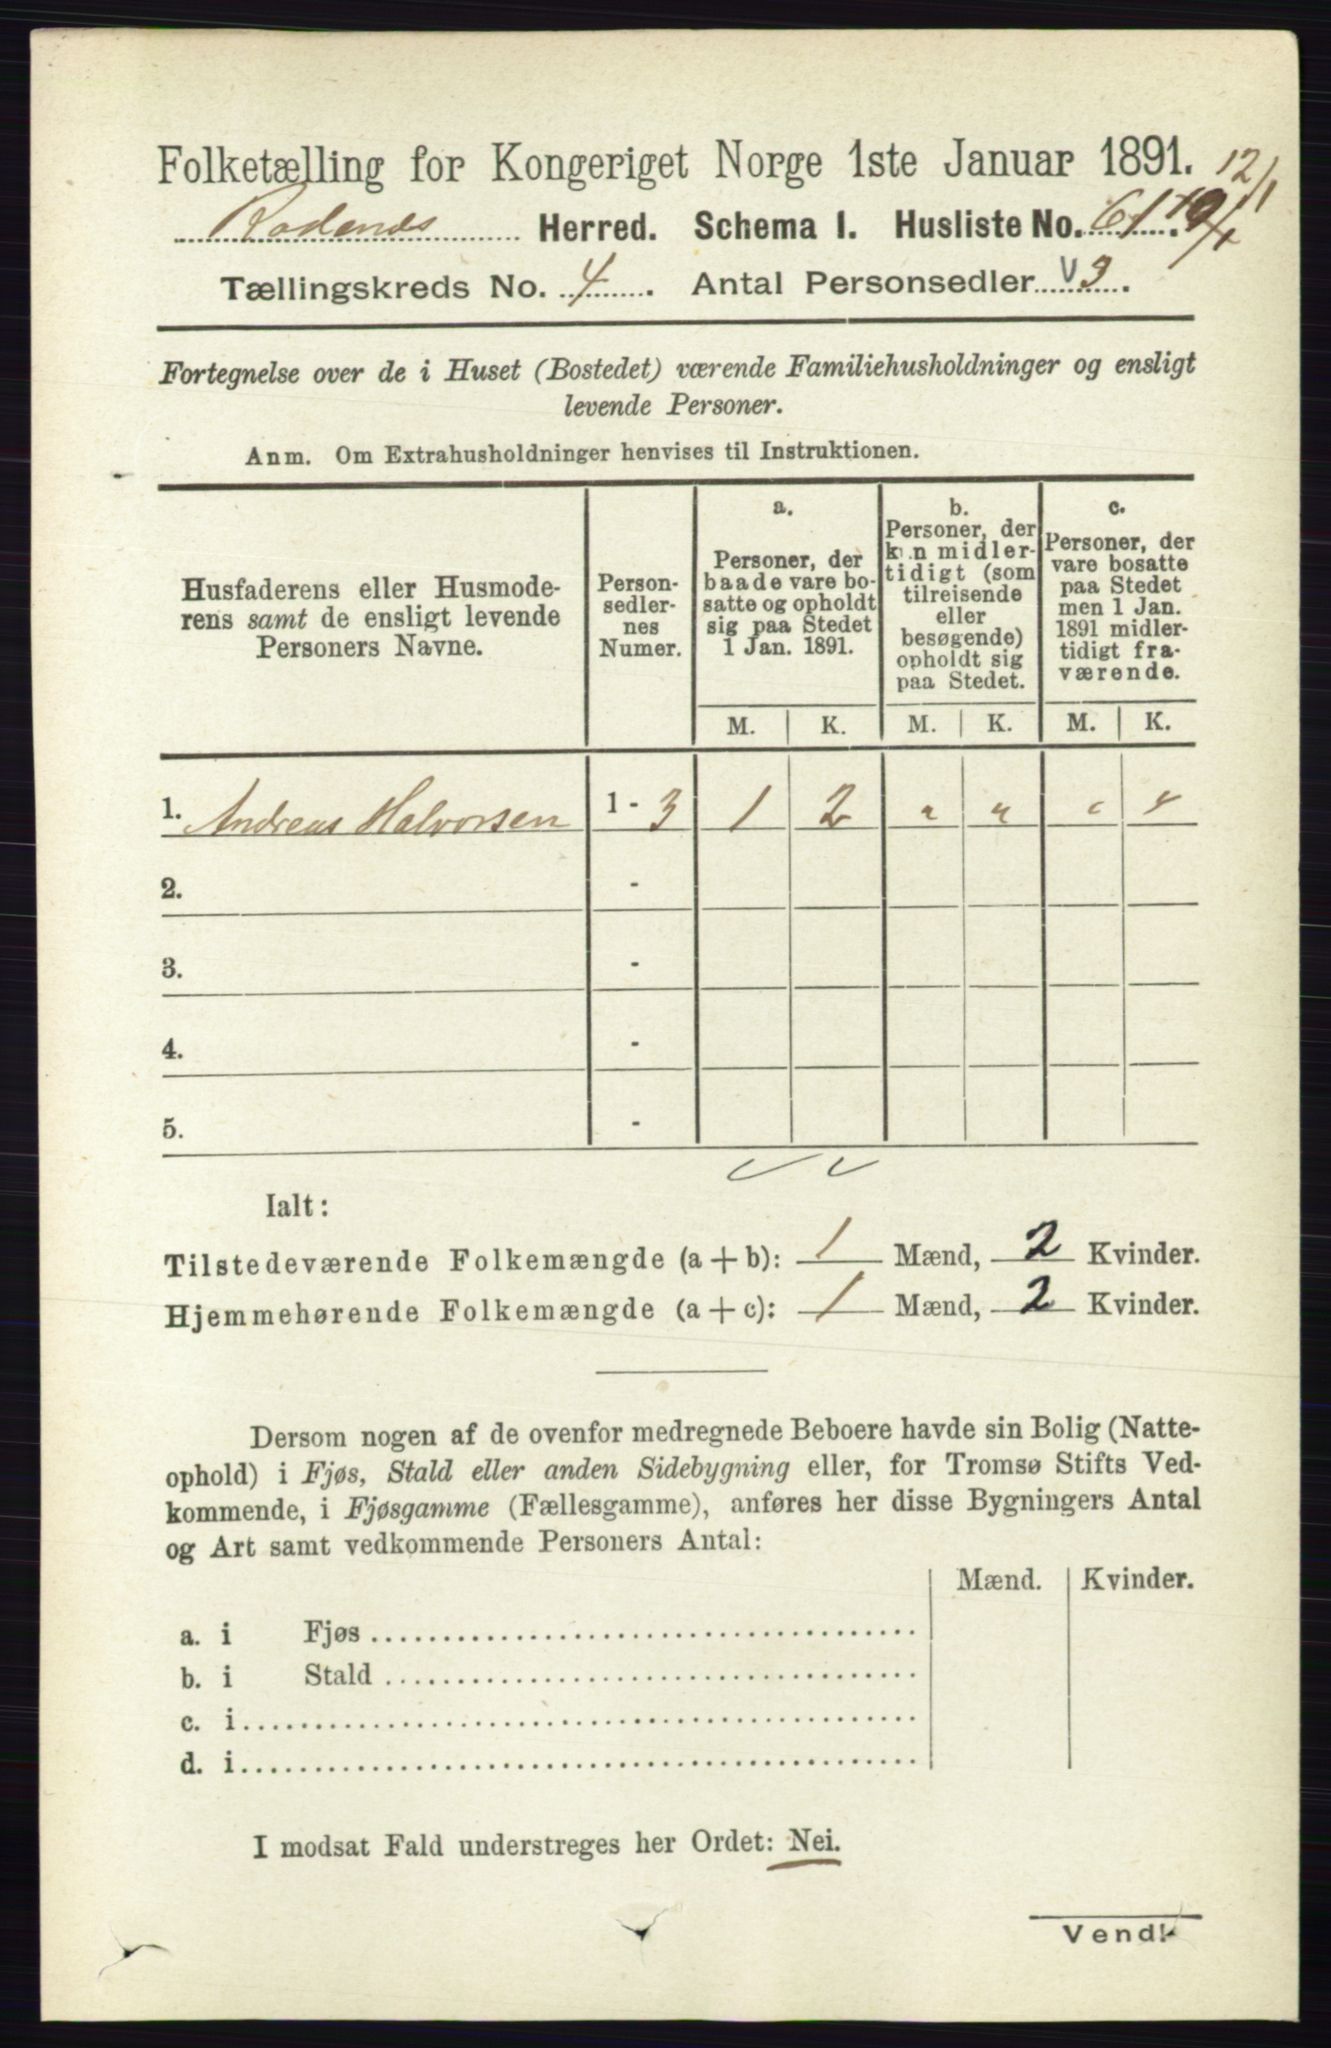 Folketælling for Kongeriget Norge 1ste Januar 1891.
12/1
Rodenes Herred. Schema I. Husliste No. 61.
Tællingskreds No. 4. Antal Personsedler 3.
Fortegnelse over de i Huset (Bostedet) værende Familiehusholdninger og ensligt
levende Personer.
Anm. Om Extrahusholdninger henvises til Instruktionen.
Husfaderens eller Husmode-
rens samt de ensligt levende
Personers Navne.
Person-
sedler-
nes
Numer.
a.
Personer, der
baade vare bo-
satte og opholdt
sig paa Stedet
1 Jan. 1891.
b.
Personer, der
kun midler-
tidigt (som
tilreisende
eller
besøgende)
opholdt sig
paa Stedet.
c.
Personer, der
vare bosatte
paa Stedet
men 1 Jan.
1891 midler-
tidigt fra-
værende.
M. K. M. K. M. K.
1. Andreas Halvorsen 1 - 3 1 2 " " " "
2. -
3. -
4. -
5. -
Ialt:
Tilstedeværende Folkemængde (a + b): 1 Mænd, 2 Kvinder.
Hjemmehørende Folkemængde (a + c): 1 Mænd, 2 Kvinder.
Dersom nogen af de ovenfor medregnede Beboere havde sin Bolig (Natte-
ophold) i Fjøs, Stald eller anden Sidebygning eller, for Tromsø Stifts Ved-
kommende, i Fjøsgamme (Fællesgamme), anføres her disse Bygningers Antal
og Art samt vedkommende Personers Antal:
Mænd. Kvinder.
a. i Fjøs
b. i Stald
c. i
d. i
I modsat Fald understreges her Ordet: Nei.
Vend!